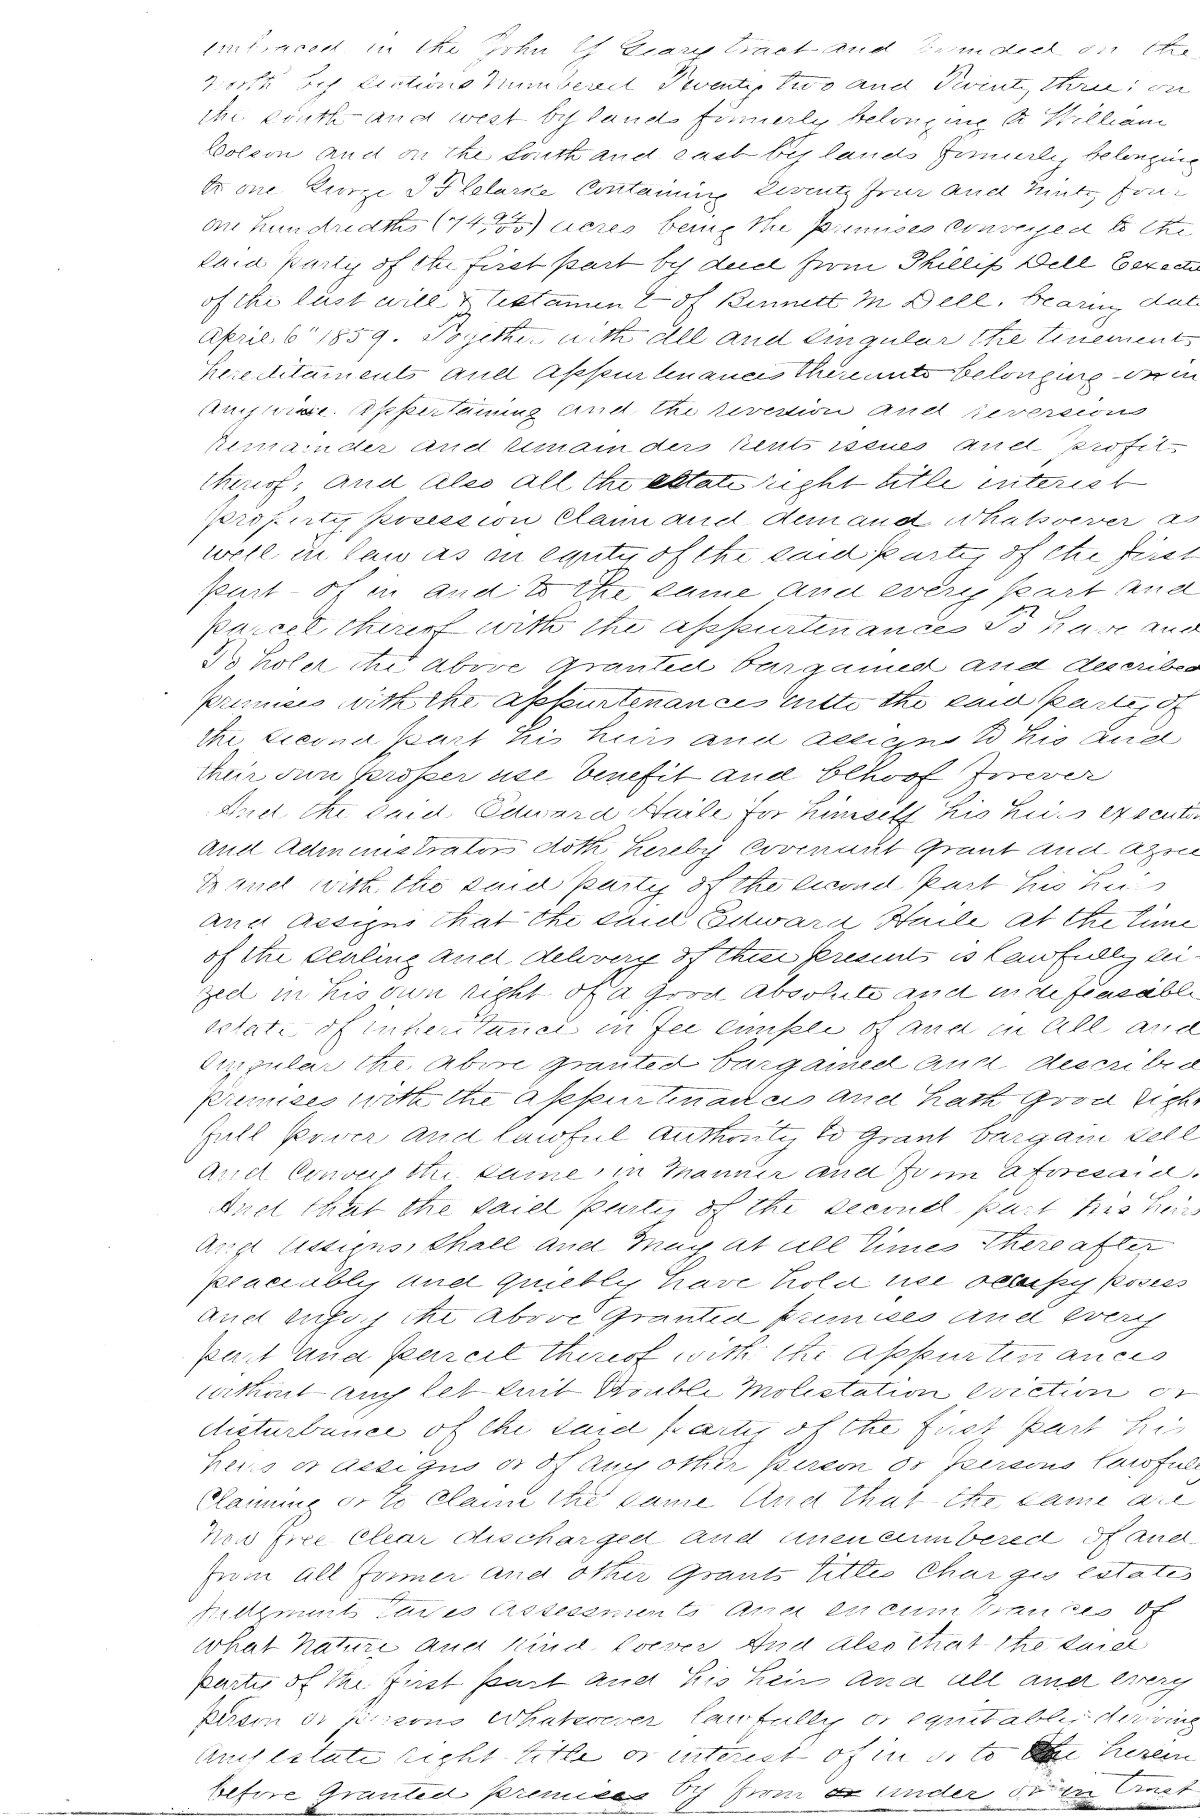 embraced in the John Y Geary tract and bounded on the
north by sections numbered Twenty two and Twenty three: on
the south and west by lands formerly belonging to William
Colson and on the South and east by lands formerly belonging
to one George J F Clarke containing Seventy four and ninty four
one hundredths (74,94/100) acres being the premises conveyed to the
said party of the first part by deed from Phillip Dell Executo
of the last will & testament of Bennett M Dell. bearing date
April 6" 1859. Together with all and singular the tenements
hereditaments and appurtenances thereunto belonging or in
anywise appertaining and the reversion and reversions
remainder and remainders rents issues and profits
thereof, and also all the estate right title interest
property posession claim and demand whatsoever as
well in law as in equity of the said party of the first
part of in and to the same and every part and
parcel thereof with the appurtenances To have and
To hold the above granted bargained and described
premises with the appurtenances unto the said party of
the second part his heirs and assigns to his and
their own proper use benefit and behoof forever
And the said Edward Haile for himself his heirs executors
and administrators doth hereby covenant grant and agree
to and with the said party of the second part his heirs
and assigns that the said Edward Haile at the time
of the sealing and delivery of these presents is lawfully sei-
zed in his own right of a good absolute and indefeasable
estate of inheritance in fee simple of and in all and
singular the above granted bargained and described
premises with the appurtenances and hath good right
full power and lawful authority to grant bargain sell
and convey the same in manner and form aforesaid.
And that the said party of the second part his heirs
and assigns, shall and may at all times thereafter
peaceably and quietly have hold use occupy posess
and enjoy the above granted premises and every
part and parcel thereof with the appurtenances
without any let suit trouble molestation eviction or
disturbance of the said party of the first part his
heirs or assigns or of any other person or persons lawfully
claiming or to claim the same And that the same are
now free clear discharged and unencumbered of and
from all former and other grants titles charges estates
judgments taxes assessments and encumbrances of
what nature and kind soever And also that the said
party of the first part and his heirs and all and every
person or persons whatsoever lawfully or equitably deriving
any estate right title or interest of in or to the herein
before granted premises by from or under or in trust